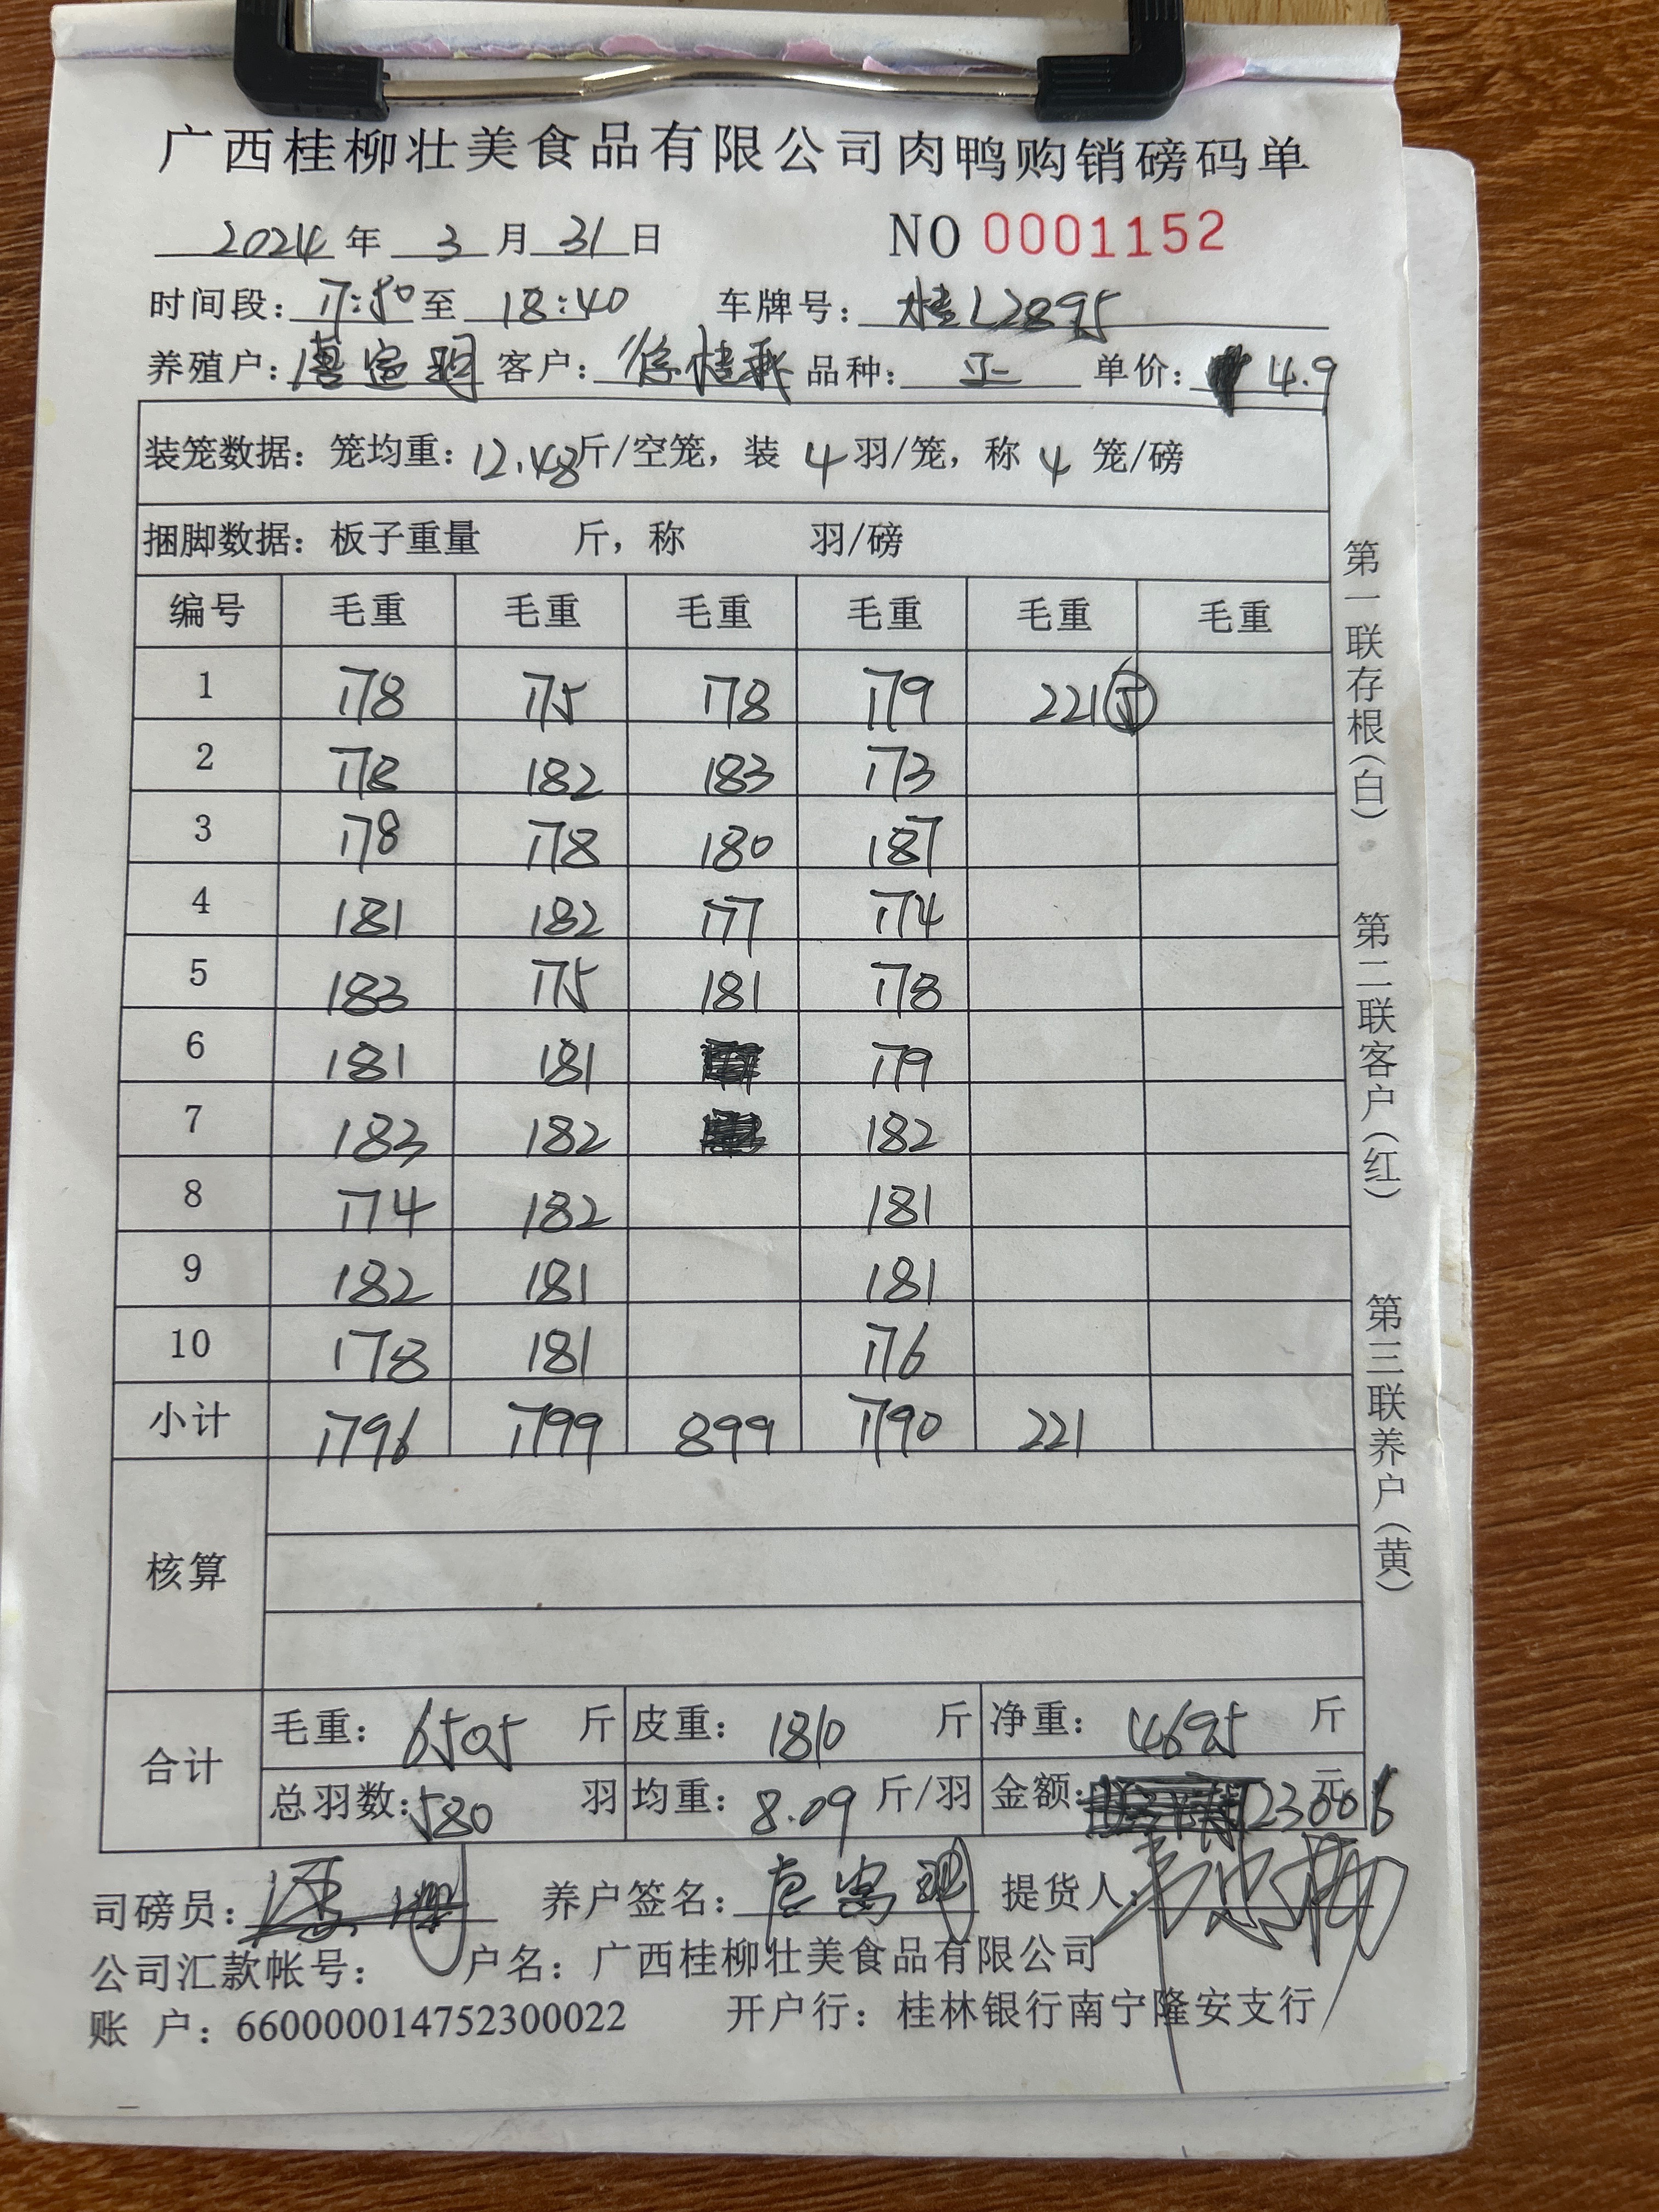 广西桂柳壮美食品有限公司肉鸭购销磅码单
2024年 3月31日 NO 0001152
时间段：17:50至 18:40 车牌号：桂L2895
养殖户： 客户：徐桂秋 品种：正 单价：4.9
装笼数据：笼均重：12.48斤/空笼，装 4 羽/笼，称 4 笼/磅
捆脚数据：板子重量 斤，称 羽/磅
编号 毛重 毛重 毛重 毛重 毛重 毛重
1 178 175 178 179 221⑤
2 178 182 183 173
3 178 178 180 187
4 181 182 177 174
5 183 175 181 178
6 181 181 179
7 183 182 182
8 174 182 181
9 182 181 181
10 178 181 176
小计 1796 1799 899 1790 221
核算
合计 毛重：6505 斤 皮重：1810 斤 净重：4695 斤
总羽数：580 羽 均重：8.09 斤/羽 金额：23006 元
司磅员： 养户签名： 提货人：
公司汇款帐号： 户名：广西桂柳壮美食品有限公司
账 户：660000014752300022 开户行：桂林银行南宁隆安支行
第一联存根(白) 第二联客户(红) 第三联养户(黄)